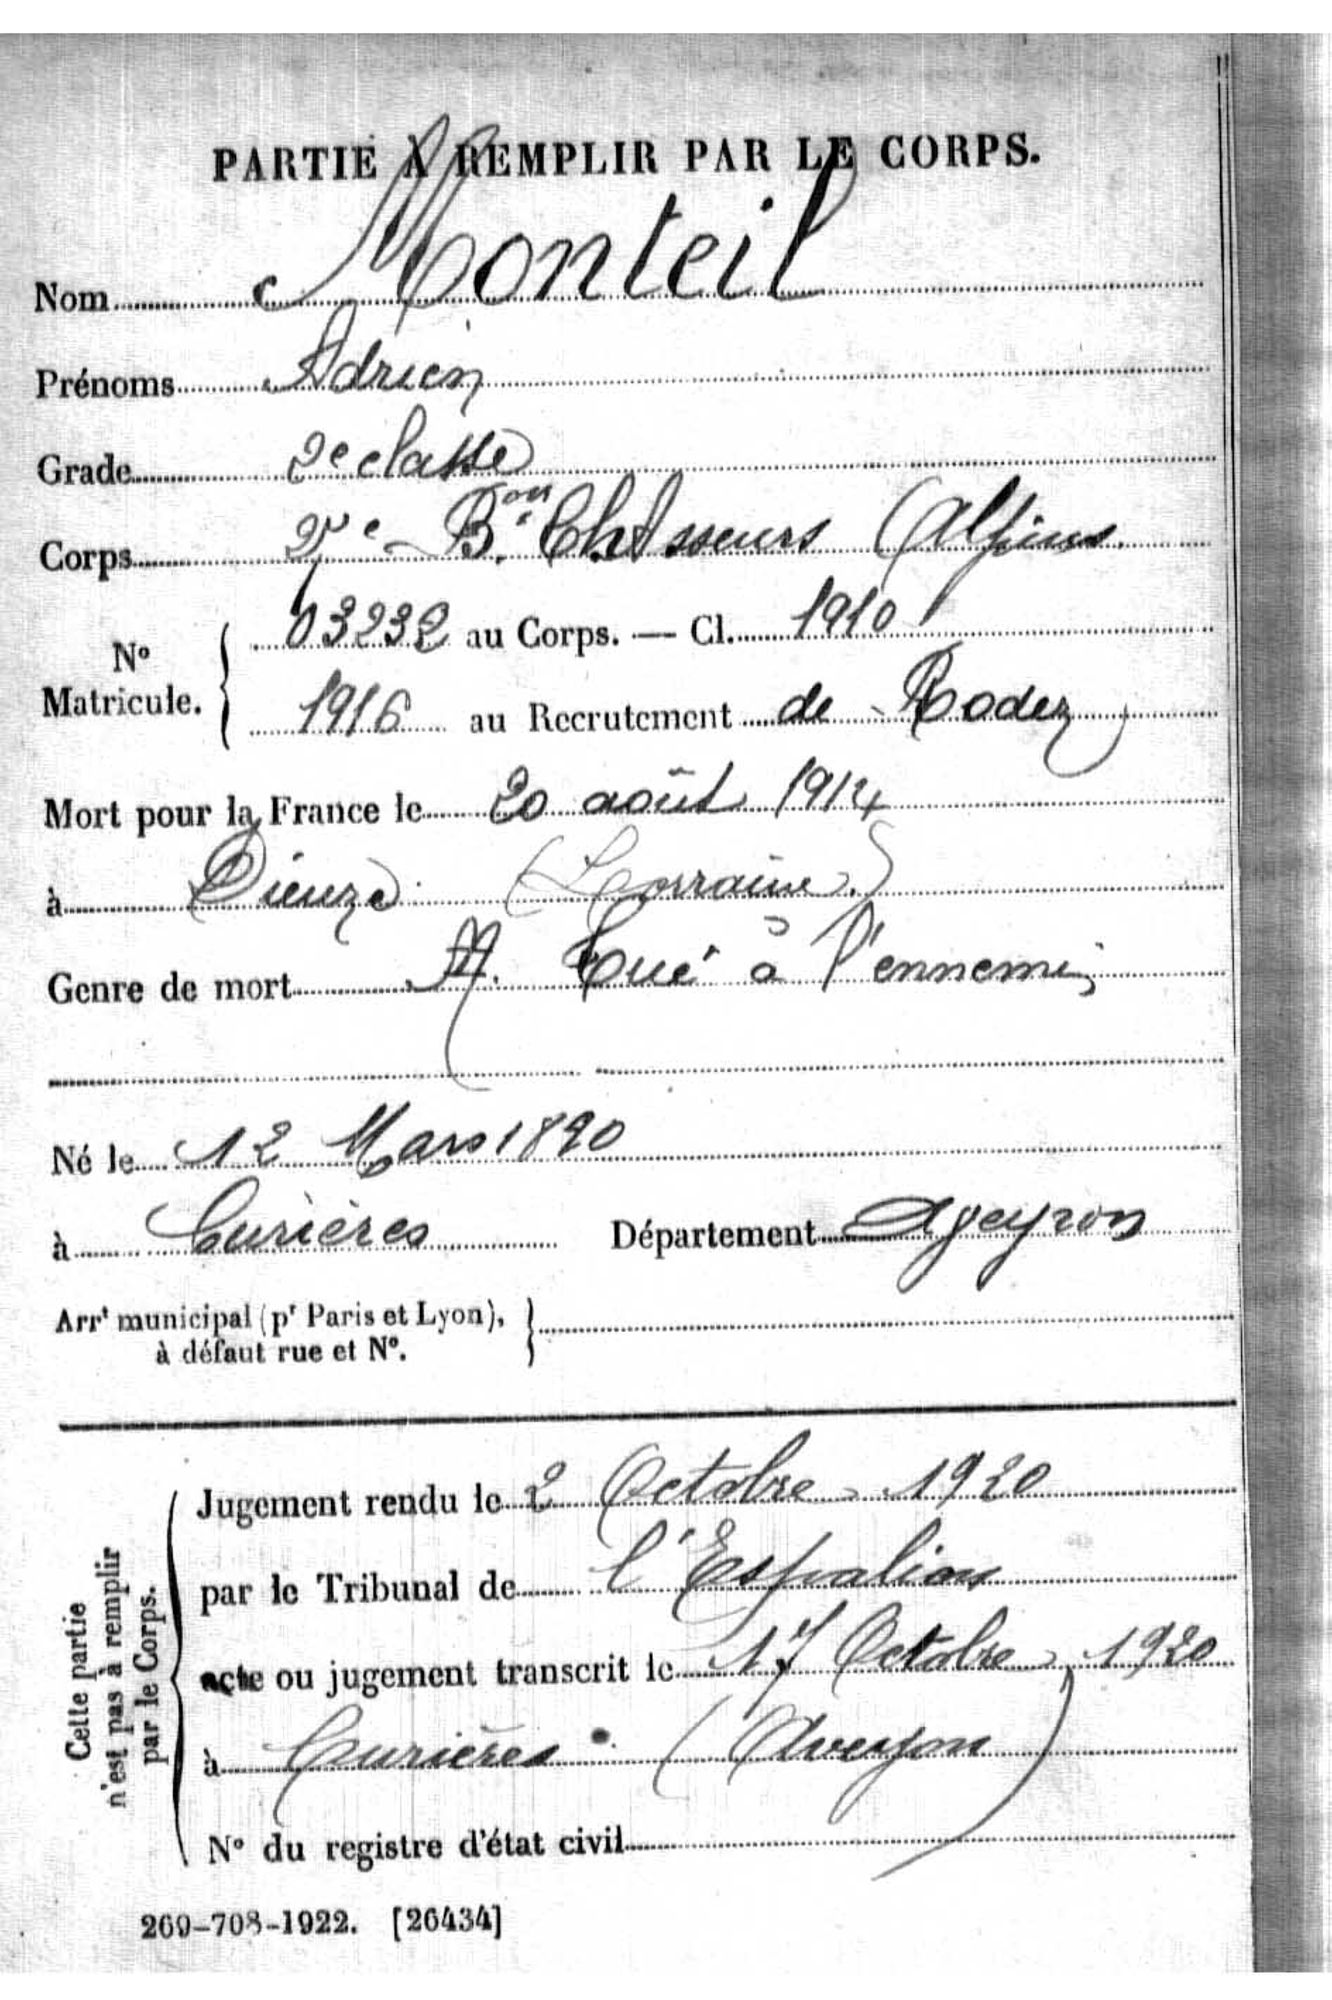 PARTIE À REMPLIR PAR LE CORPS.
Nom Monteil
Prénoms Adrien
Grade 2e classe
Corps e Bon Chasseurs Alpins
No Matricule. 03232 au Corps. — Cl. 1910
1916 au Recrutement de Rodez
Mort pour la France le 20 août 1914
à Dieuze (Lorraine)
Genre de mort Tué à l'ennemi
Né le 12 Mars 1890
à Curières Département Aveyron
Arrt municipal (pr Paris et Lyon), à défaut rue et No.
Cette partie n'est pas à remplir par le Corps.
Jugement rendu le 2 Octobre 1920
par le Tribunal de l'Espalion
acte ou jugement transcrit le 17 Octobre 1920
à Curières (Aveyron)
No du registre d'état civil
269-708-1922. [26434]